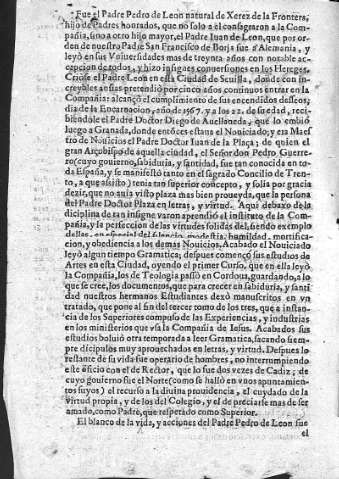 Fue el Padre Pedro de Leon natural de Xerez de la Frontera,
hijo de Padres honrados, que no solo a el consagraron a la Compa
ñia, sino a otro hijo mayor, el Padre Iuan de Leon, que por or-
den de nuestro Padre San Francisco de Borja fue a Alemania, y
leyò en sus Vniuersidades mas de treynta años con notable ac-
cepcion de todos, y hizo insignes conuersiones en los Hereges.
Criòse el Padre Leon en esta Ciudad de Seuilla, donde con in-
creybles ansias pretendiò por cinco años continuos entrar en la
Compañia: alcançò el cumplimiento de sus encendidos desseos,
dia de la Encarnacion, año de 1567. y a los 22. de su edad, re-
biendole el Padre Doctor Diego de Auellaneda, què lo embiò
luego a Granada, donde entonces estaua el Nouiciado; y era Maes
tro de Nouicios el Padre Doctor Iuan de la Plaça; de quien el
gran Arçobispo de aquella ciudad, el Señor don Pedro Guerre-
ro (cuyo gouierno, sabiduria, y santidad, fue tan conocida en to-
da España, y se manifestò tanto en el sagrado Concilio de Tren-
to, a que assistio) tenia tan superior concepto, y solia por gracia
dezir, que no auia visto plaza mas bien proueyda, que la persona
del Padre Doctor Plaza en letras, y virtud. Aqui debaxo de la
diciplina de tan insigne varon aprendiò el instituto de la Com-
pañia, y la perfeccion de las virtudes solidas, siendo exemplo
dellas, en especial del silencio, modestia, humildad, mortifica-
cion, y obediencia a los demas Nouicios. Acabado el Nouiciado
leyò algun tiempo Gramatica; despues començò sus estudios de
Artes en esta Ciudad, oyendo el primer Curso, que en ella leyò
la Compañia, los de Teologia passò en Cordoua, guardando, a lo
que se cree, los documentos, que para crecer en sabiduria, y santi
dad nuestros hermanos Estudiantes dexò manuscritos en vn
tratado, que pone al fin del tercer tomo de los tres, que a instan-
cia de los Superiores compuso de las Experiencias, y industrias
en los ministerios que vsa la Compañia de Iesus. Acabados sus
estudios boluiò otra temporada a leer Gramatica, sacando siem-
pre dicipulos muy aprouechados en letras, y virtud. Despues lo
restante de su vida fue operario de hombres, no interrumpiendo
este oficio con el de Rector, que lo fue dos vezes de Cadiz; de
cuyo gouierno fue el Norte (como se hallò en vnos apuntamien-
tos suyos) el recurso a la diuina prouidencia, el cuydado de la
virtud propia, y de los del Colegio, y el preciarse mas de ser
amado, como Padre, que respetado como Superior.
El blanco de la vida, y acciones del Padre Pedro de Leon fue
el